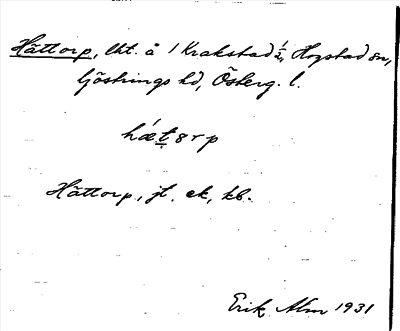 Hättorp, lht. å 1 Krakstad ½, Hogstad sn,
Göstrings hd, Österg. l.
hǽt̤8rp
Hättorp, jt. ek, kb.
Erik Alm 1931